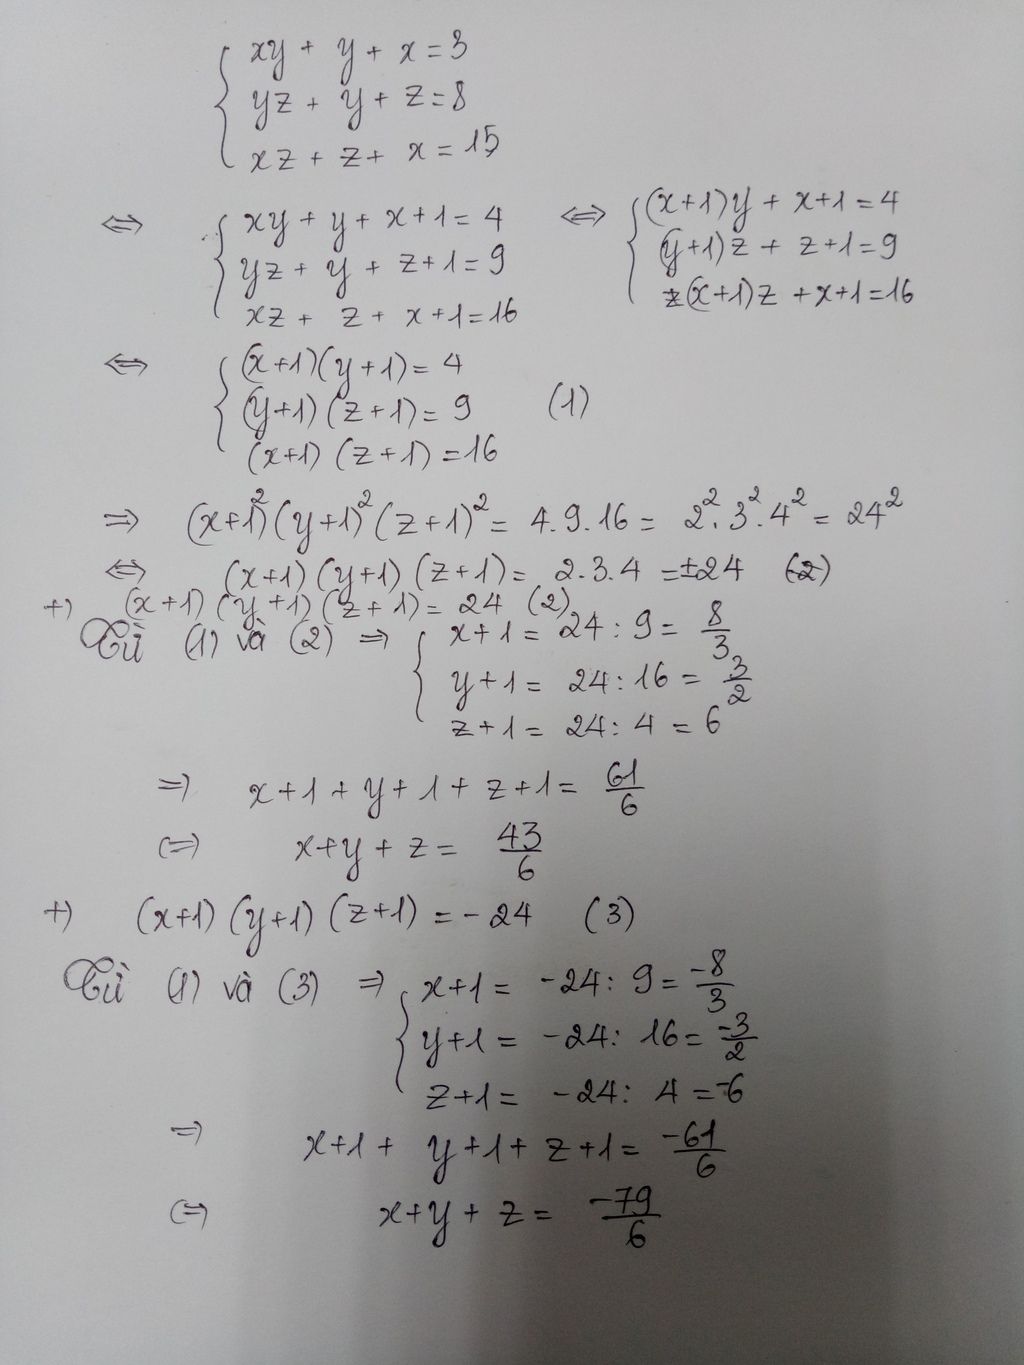 xy + y + x = 3
yz + y + z = 8
xz + z + x = 15
⇔ xy + y + x + 1 = 4 ⇔ (x+1)y + x+1 = 4
yz + y + z+1 = 9 (y+1)z + z+1 = 9
xz + z + x+1 = 16 (x+1)z + x+1 = 16
⇔ (x+1)(y+1) = 4
(y+1)(z+1) = 9 (1)
(x+1)(z+1) = 16
⇒ (x+1)²(y+1)²(z+1)² = 4.9.16 = 2².3².4² = 24²
⇔ (x+1)(y+1)(z+1) = 2.3.4 = ±24 (2)
+) (x+1)(y+1)(z+1) = 24 (2)
Từ (1) và (2) ⇒ x+1 = 24 : 9 = 8/3
y+1 = 24 : 16 = 3/2
z+1 = 24 : 4 = 6
⇒ x+1+y+1+z+1 = 61/6
(=) x+y+z = 43/6
+) (x+1)(y+1)(z+1) = -24 (3)
Từ (1) và (3) ⇒ x+1 = -24 : 9 = -8/3
y+1 = -24 : 16 = -3/2
z+1 = -24 : 4 = -6
⇒ x+1 + y+1 + z+1 = -61/6
(=) x+y+z = -79/6